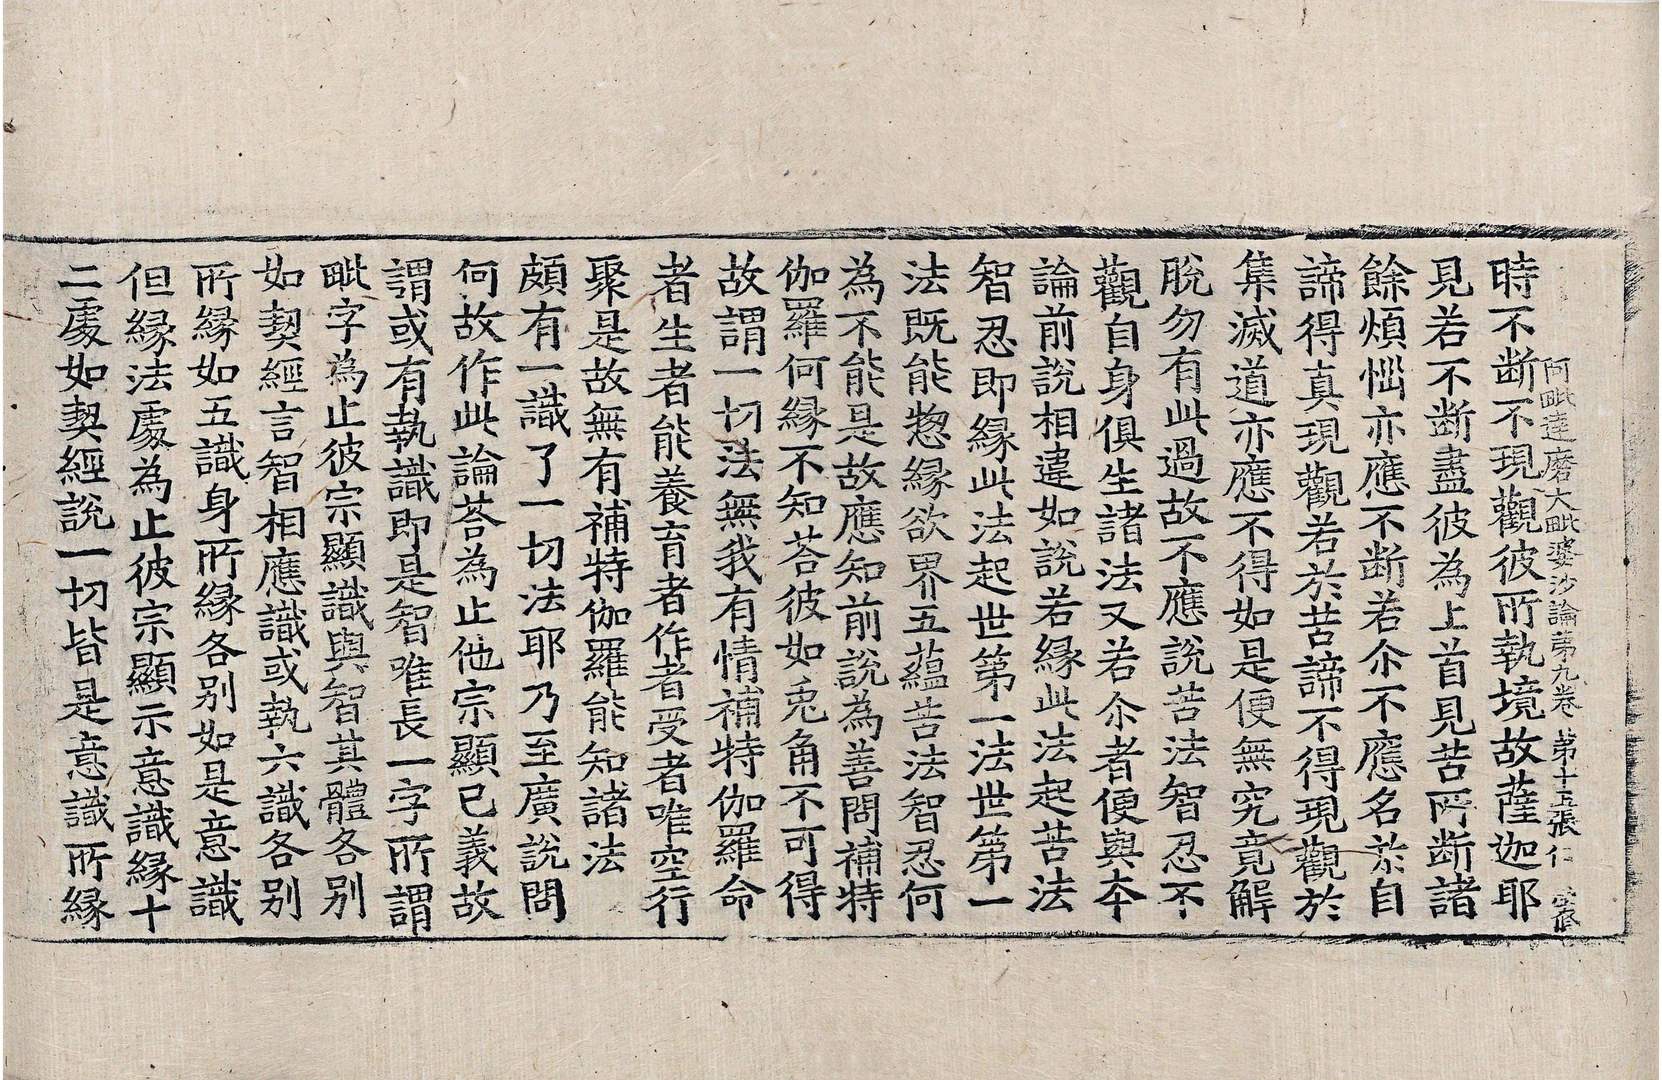 阿毗達磨大毗婆沙論第九卷 第十五張 仁
時不断不現觀彼所執境故薩迦耶
見若不断盡彼為上首見苦所断諸
餘煩惱亦應不断若尒不應名於自
諦得真現觀若於苦諦不得現觀於
集滅道亦應不得如是便無究竟解
脫勿有此過故不應說苦法智忍不
觀自身俱生諸法又若尒者便與本
論前說相違如說若緣此法起苦法
智忍即緣此法起世第一法世第一
法既能惣緣欲界五蘊苦法智忍何
為不能是故應知前說為善問補特
伽羅何緣不知荅彼如兎角不可得
故謂一切法無我有情補特伽羅命
者生者能養育者作者受者唯空行
聚是故無有補特伽羅能知諸法
頗有一識了一切法耶乃至廣說問
何故作此論荅為止他宗顯已義故
謂或有執識即是智唯長一字所謂
毗字為止彼宗顯識與智其體各別
如契經言智相應識或執六識各別
所緣如五識身所緣各別如是意識
但緣法處為止彼宗顯示意識緣十
二處如契經說一切皆是意識所緣